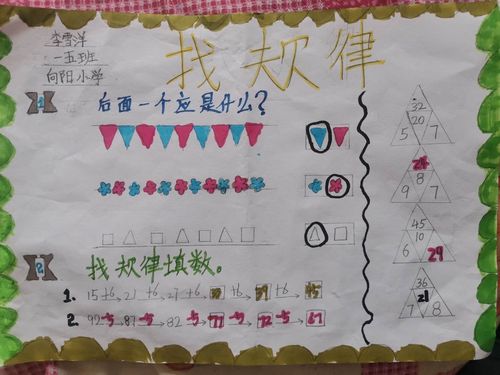 李雪洋
一五班
向阳小学
找规律
1
后面一个应是什么?
2
找规律填数。
1. 15 +6 21 +6 27 +6 +6 39 +6 45
2. 92 -5 87 -5 82 -5 77 -5 72 -5 67
32
20
5 7
24
8
9 7
45
10
6 29
36
21
7 8